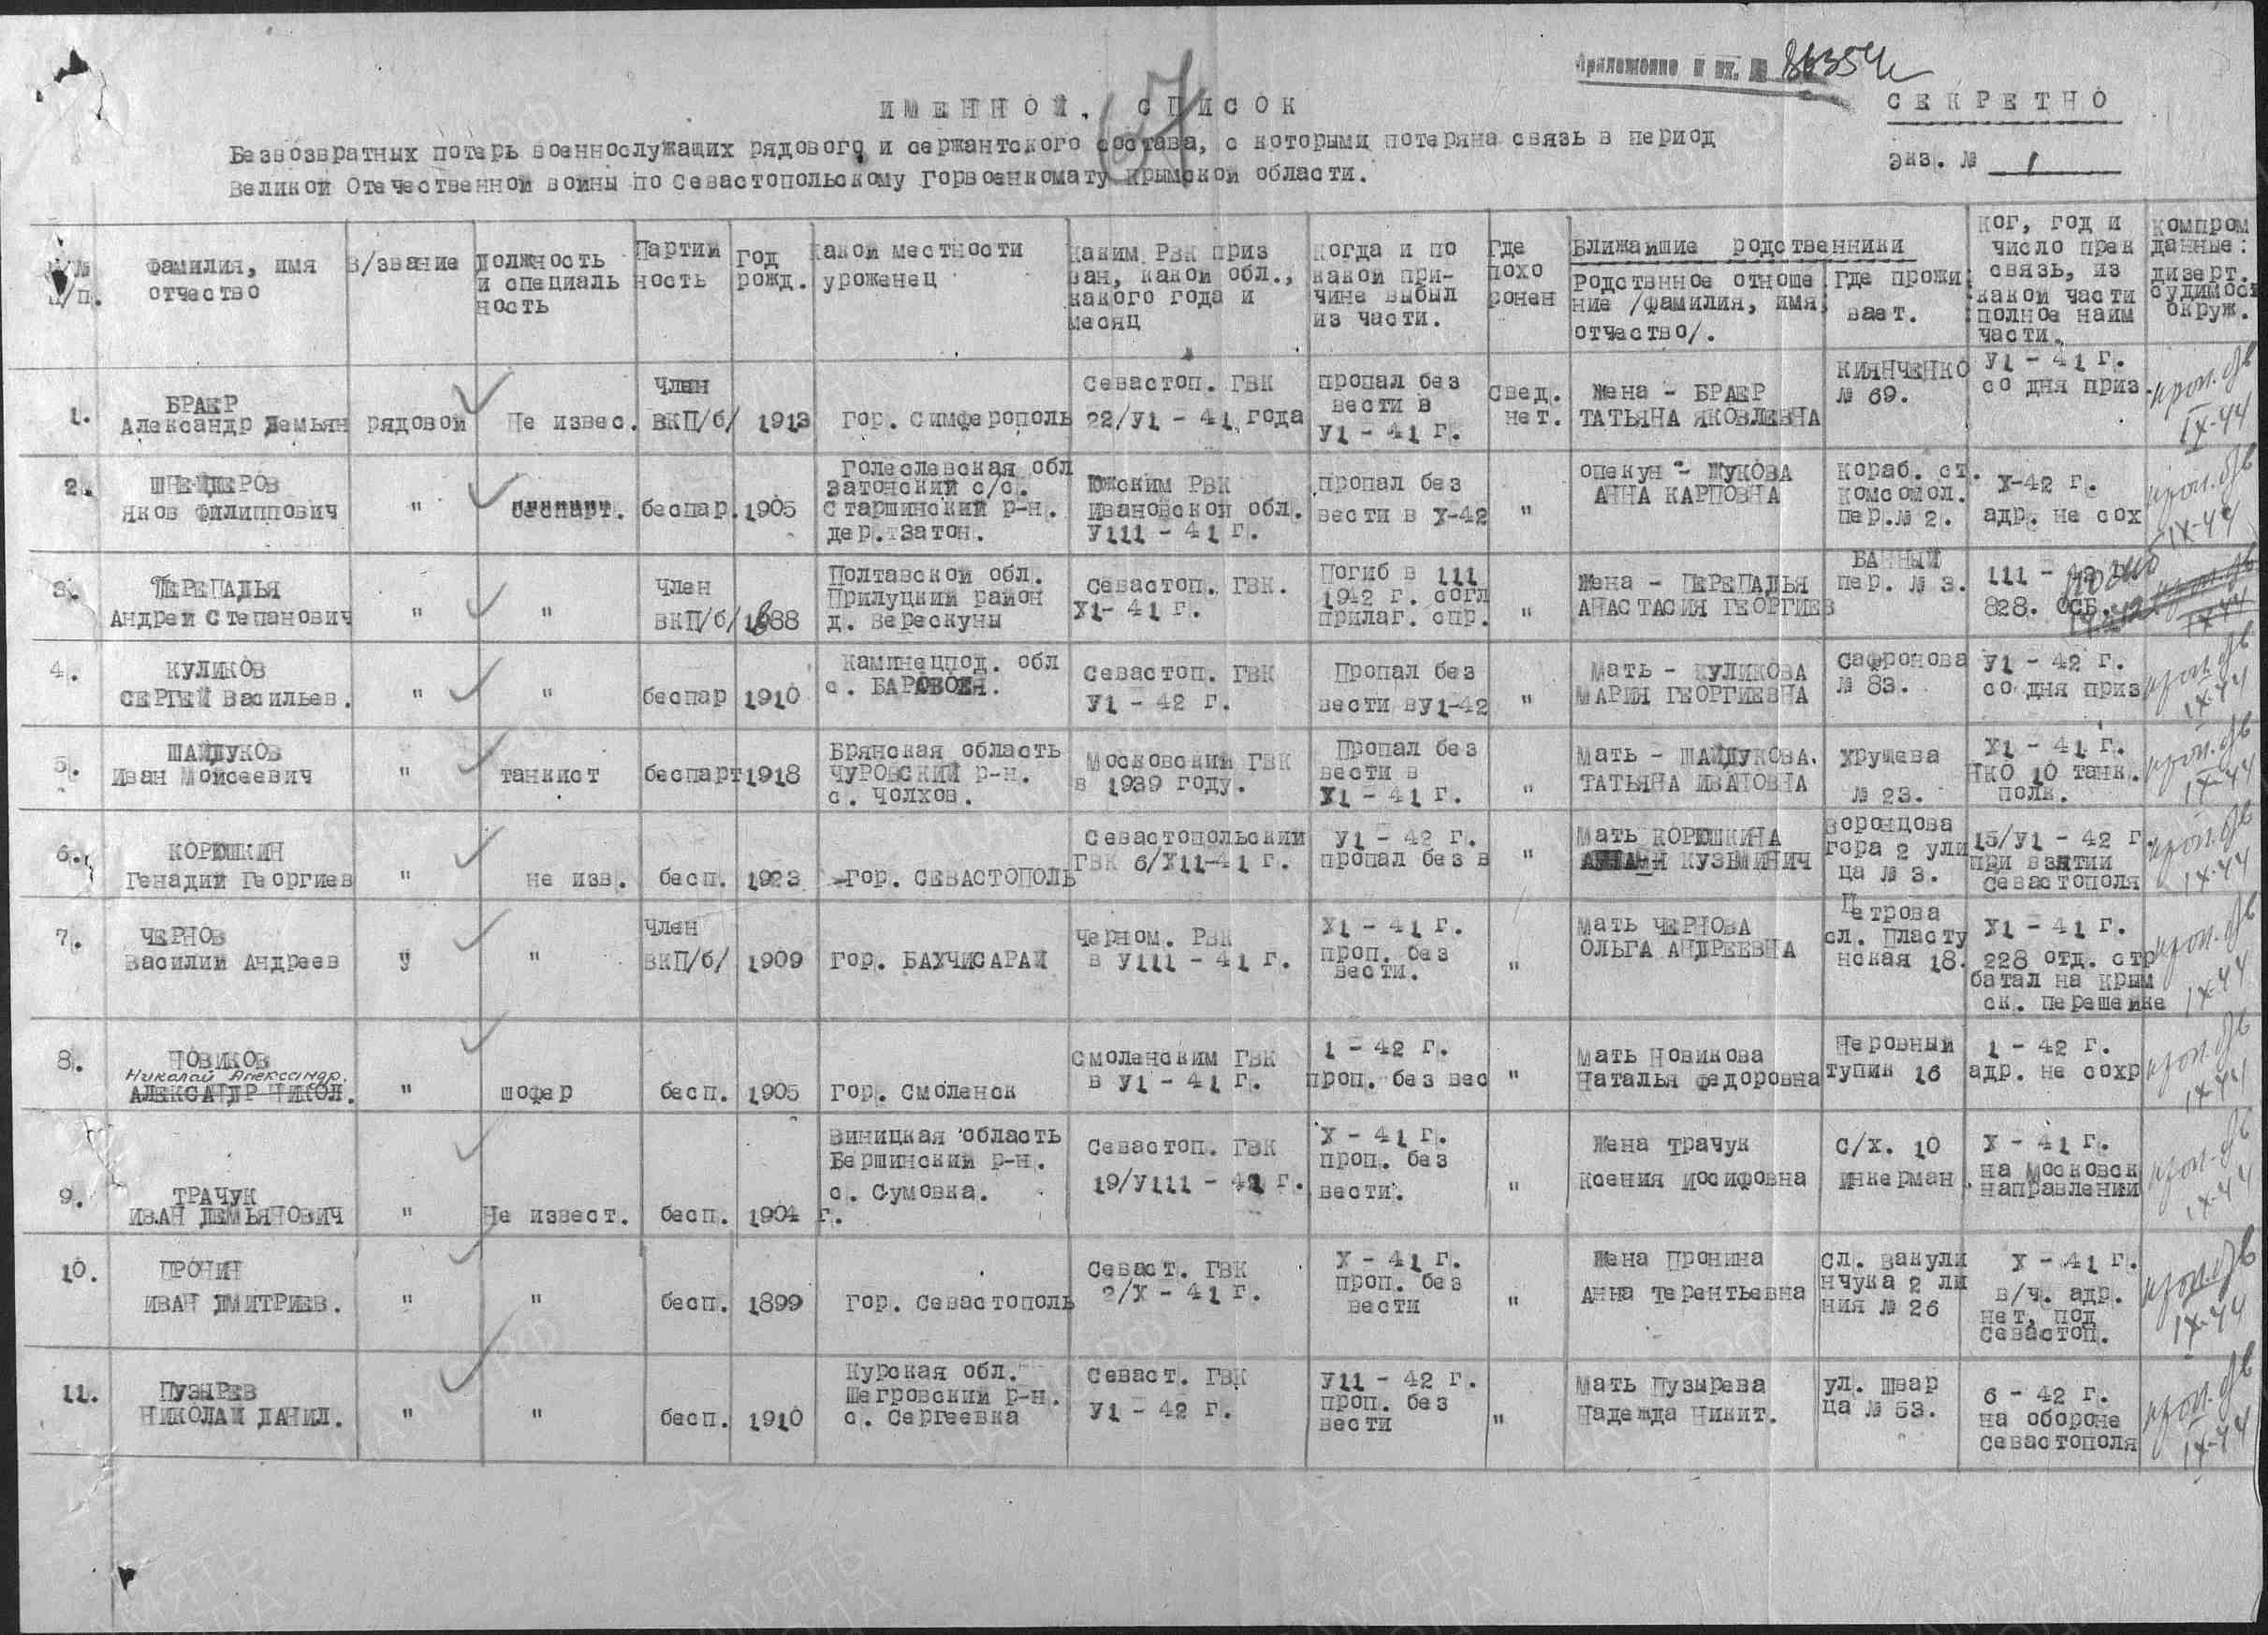 Приложение к вх. № 86354с
СЕКРЕТНО
экз. № 1
ИМЕННОЙ, СПИСОК
Безвозвратных потерь военнослужащих рядового и сержантского состава, с которыми потеряна связь в период
Великой Отечественной войны по Севастопольскому Горвоенкомату Крымской области.
№/№ п/п.
фамилия, имя отчество
в/звание
должность и специаль ность
Партий ность
Год рожд.
Какой местности уроженец
Каким РВК приз ван, какой обл., какого года и месяц
Когда и по какой при- чине выбыл из части.
Где похо ронен
Ближайшие родственники
Родствнное отноше ние /фамилия, имя, отчество/.
Где прожи вает.
Ког, год и число прек связь, из какой части полное наим части.
Компром данные: дизерт. судимос окруж.
1. БРАЕР Александр Демьян рядовой Не извес. Член ВКП/б/ 1913 гор. Симферополь Севастоп. ГВК 22/У1 - 41 года пропал без вести в У1 - 41 г. Свед. нет. Жена - БРАЕР ТАТЬЯНА ЯКОВЛЕВНА КИЯНЧЕНКО № 69. У1 - 41 г. со дня приз. IX-44
2. ШНЕЙДЕРОВ Яков Филиппович " беспарт. беспар. 1905 Голеслевская обл Затонский с/с. Старшинский р-н. дер. Затон. Южским РВК Ивановской обл. У111 - 41 г. пропал без вести в Х-42 " опекун - ЖУКОВА АННА КАРПОВНА Кораб. ст. Комсомол. пер. № 2. Х-42 г. адр. не сох IX-44
3. ПЕРЕПАДЬЯ Андрей Степанович " " Член ВКП/б/ 1888 Полтавской обл. Прилуцкий район д. Верескуны Севастоп. ГВК. Х1- 41 г. Погиб в 111 1942 г. согл прилаг. спр. " Жена - ПЕРЕПАДЬЯ АНАСТАСИЯ ГЕОРГИЕВ БАННЫЙ пер. № 3. 111 - 42 г. 828. ОСБ. погиб IX-44
4. КУЛИКОВ СЕРГЕЙ Васильев. " " беспар 1910 Каминецпод. обл с. БАРОВОЕЯ. Севастоп. ГВК У1 - 42 г. Пропал без вести вУ1-42 " Мать - КУЛИКОВА МАРИЯ ГЕОРГИЕВНА Сафронова № 83. У1 - 42 г. со дня приз IX-44
5. ШАЙДУКОВ Иван Моисеевич " танкист беспарт 1918 Брянская область ЧУРОВСКИЙ р-н. с. Чолхов. Московский ГВК в 1939 году. Пропал без вести в Х1 - 41 г. " Мать - ШАЙДУКОВА. ТАТЬЯНА ИВАНОВНА Хрущева № 23. Х1 - 41 г. НКО 10 танк. полк. IX-44
6. КОРЮШКИН Генадий Георгиев " не изв. бесп. 1923 гор. СЕВАСТОПОЛЬ Севастопольский ГВК 6/Х11-41 г. У1 - 42 г. пропал без в " Мать КОРЮШКИНА КУЗЬМИНИЧ Воронцова гора 2 ули ца № 3. 15/У1 - 42 г. при взятии Севастополя IX-44
7. ЧЕРНОВ Василий Андреев У " Член ВКП/б/ 1909 гор. БАХЧИСАРАЙ Черном. РВК в У111 - 41 г. Х1 - 41 г. проп. без вести. " Мать ЧЕРНОВА ОЛЬГА АНДРЕЕВНА Петрова сл. Пласту нская 18. Х1 - 41 г. 228 отд. стр батал на крым ск. перешейке IX-44
8. НОВИКОВ Николай Александр. АЛЕКСАНДР НИКОЛ. " шофер бесп. 1905 гор. Смоленск Смоленским ГВК в У1 - 41 г. 1 - 42 г. проп. без вес " Мать Новикова Наталья Федоровна Неровный тупик 16 1 - 42 г. адр. не сохр IX-44
9. ТРАЧУК ИВАН ДЕМЬЯНОВИЧ " Не извест. бесп. 1904 г. Виницкая область Бершинский р-н. с. Сумовка. Севастоп. ГВК 19/У111 - 41 г. Х - 41 г. проп. без вести. " Жена Трачук Ксения Иосифовна С/Х. 10 Инкерман Х - 41 г. на Московск направлении IX-44
10. ПРОНИН ИВАН ДМИТРИЕВ. " " бесп. 1899 гор. Севастополь Севаст. ГВК 2/Х - 41 г. Х - 41 г. проп. без вести " Жена Пронина Анна Терентьевна Сл. Вакули нчука 2 ли ния № 26 Х - 41 г. в/ч. адр. нет, под Севастоп. IX-44
11. ПУЗЫРЕВ НИКОЛАЙ ДАНИЛ. " " бесп. 1910 Курская обл. Шегровский р-н. с. Сергеевка Севаст. ГВК У1 - 42 г. У11 - 42 г. проп. без вести " Мать Пузырева Надежда Никит. ул. Швар ца № 53. 6 - 42 г. на обороне Севастополя IX-44